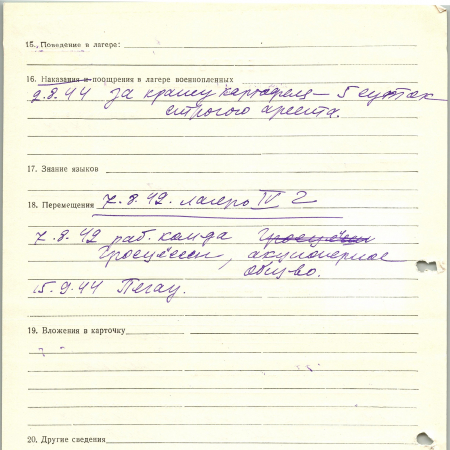 15. Поведение в лагере:
16. Наказания и поощрения в лагере военнопленных
9.8.44 за кражу картофеля – 5 суток
строгого ареста.
17. Знание языков
18. Перемещения 7.8.42. лагерь IV G
7.8.42 раб. команда Гросцёссен
Гросцёссен, акционерное
общво.
15.9.44 Пегау.
19. Вложения в карточку
20. Другие сведения